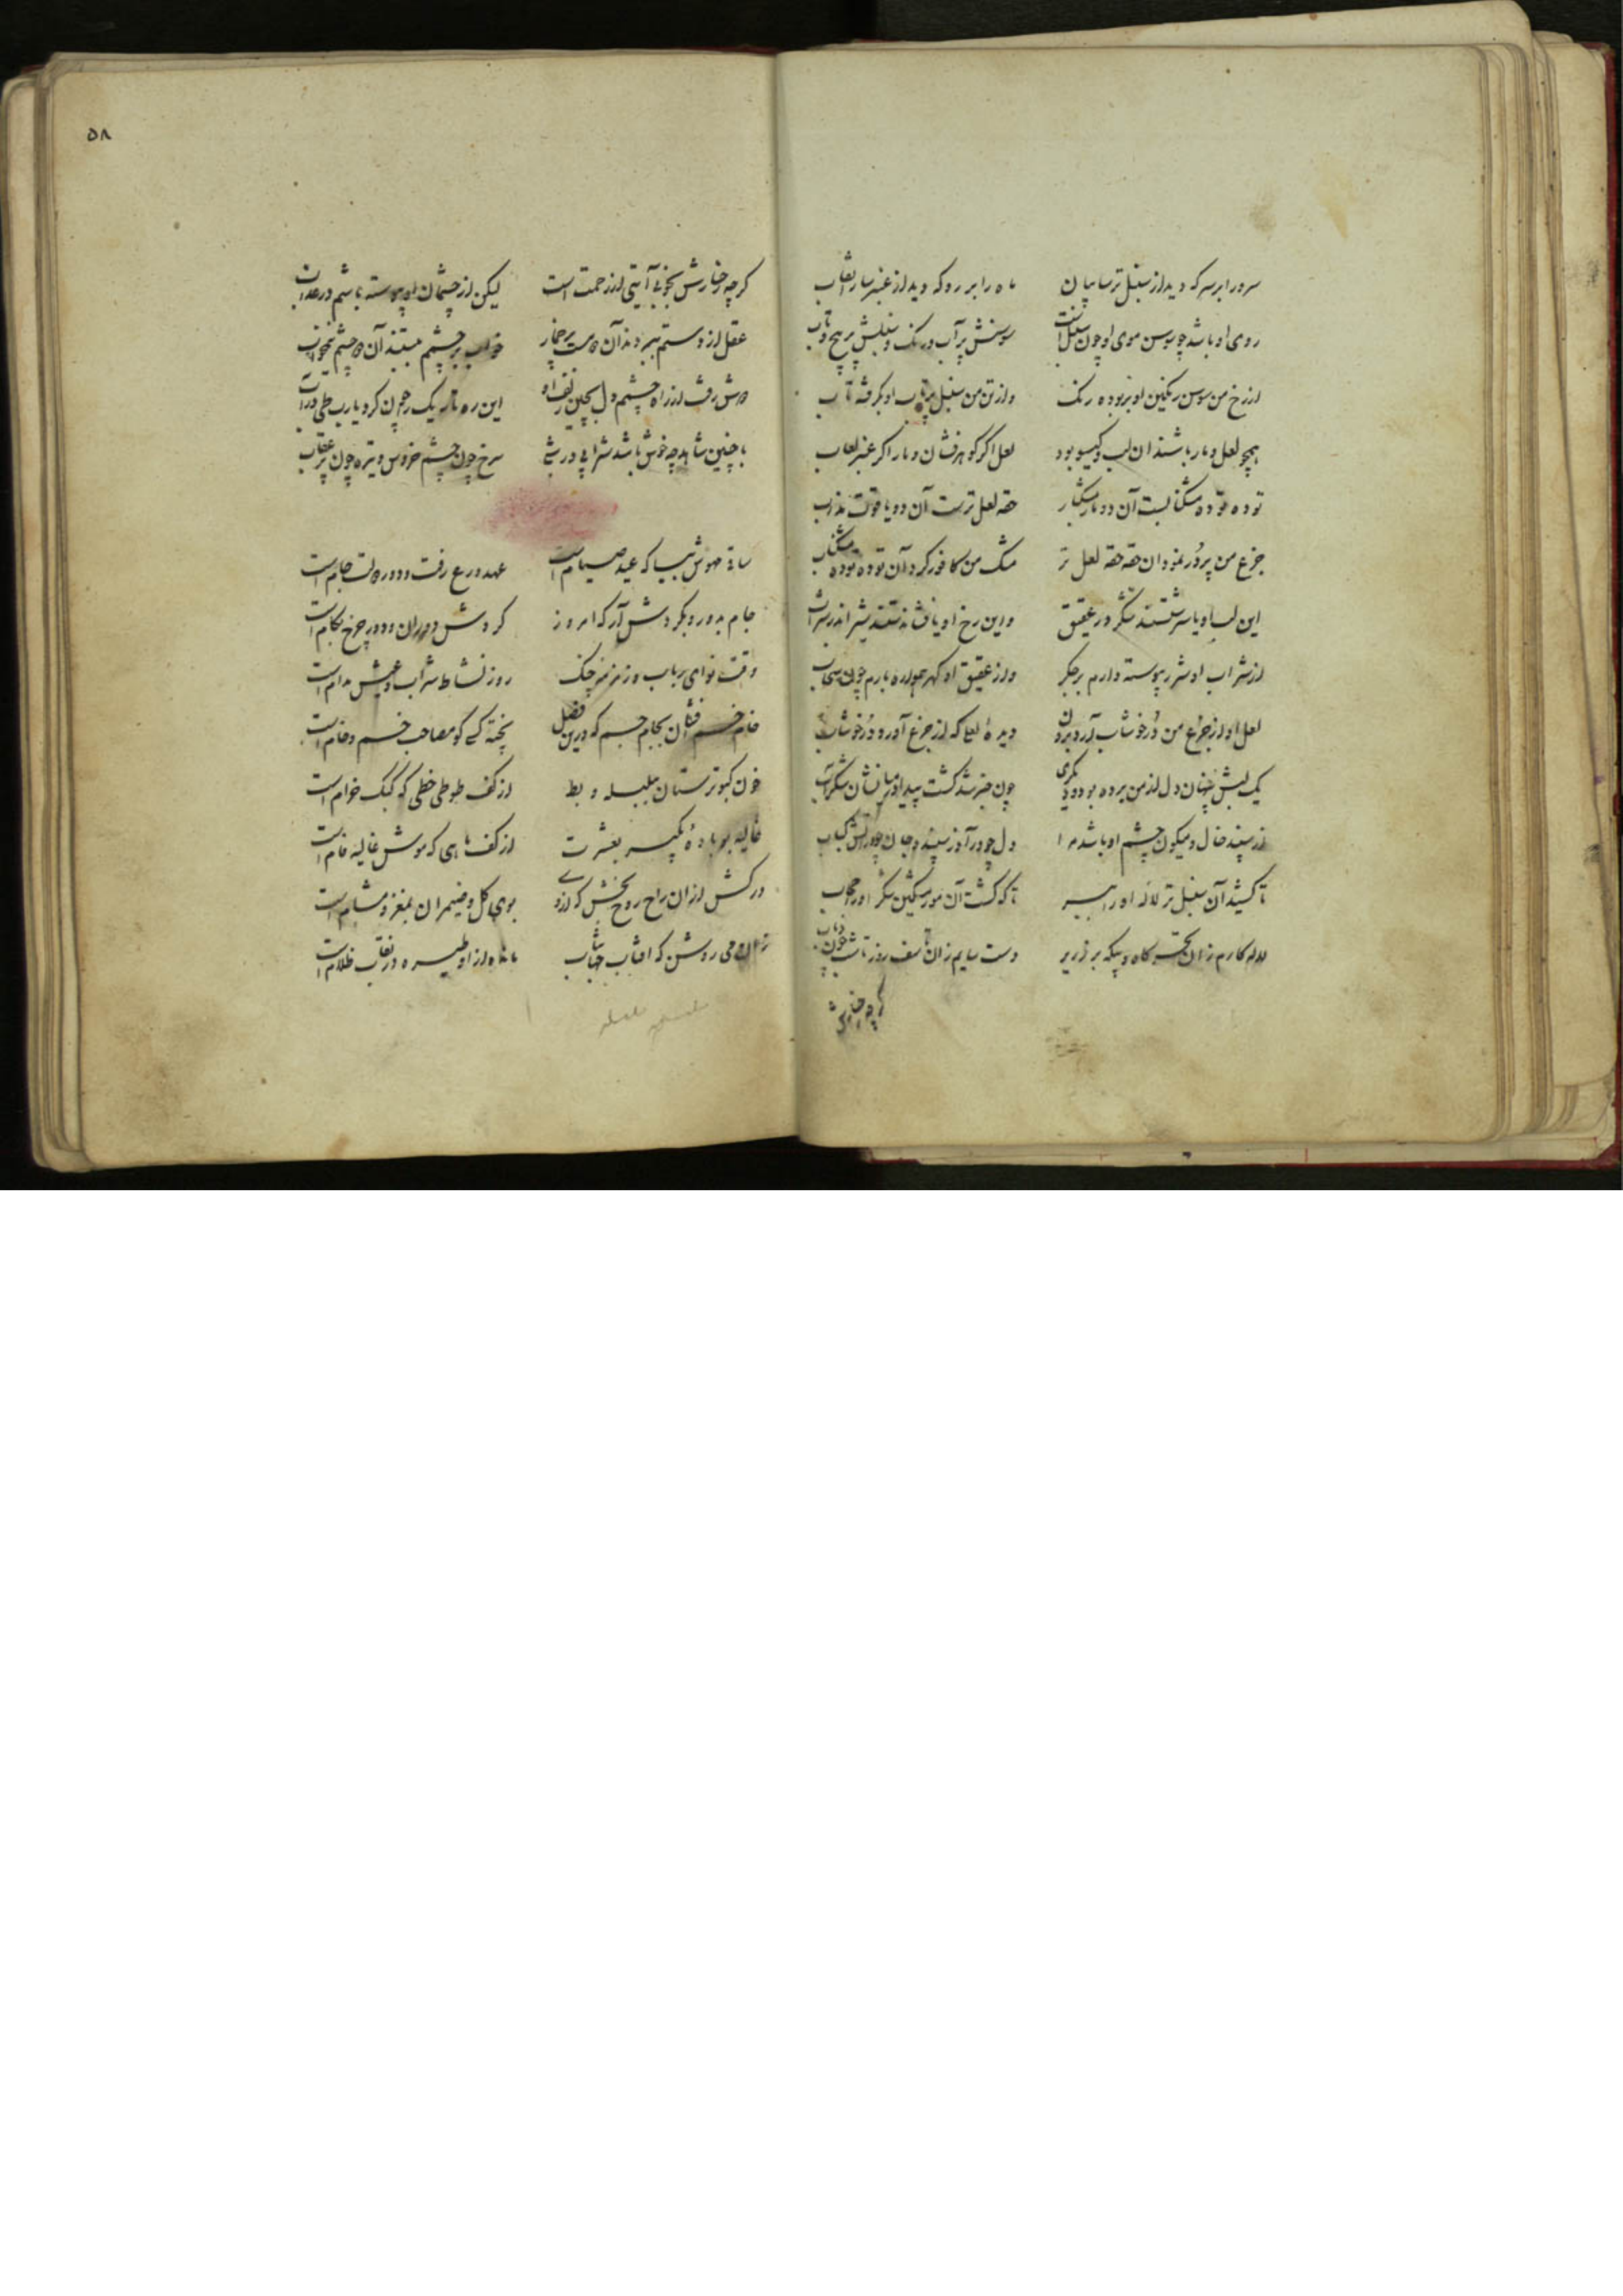 سرو را بر سر که دید از سنبل تر سایبان ماه را بر رو که دید از عنبر سارا نقاب
روی او باشد چو سوسن موی او چون سنبل است سوسنش پر آب و رنگ و سنبلش پر پیچ و تاب
از رخ من سوسن رنگین او بربوده رنگ وز تن من سنبل پرتاب او بگرفته تاب
همچو لعل و مار باشند آن لب و گیسو بود لعل اگر گوهرفشان و مار اگر عنبر لعاب
توده توده مشک نابست آن دو مار مشکبار حقه لعل ترست آن دو یاقوت مذاب
جزع من پر در نمود آن حقه حقه لعل تر مشک من کافور کرد آن توده توده مشک ناب
این لب او یا سرشتستند شکر در عقیق واین رخ او یا
از شراب او شرر پیوسته دارم بر جگر وز عقیق او گهر همواره بارم چون سحاب
لعل او از جزع من در خوشاب آرد برون دیده لعلی که از جزع آورد در خوشاب
یک لبش چنان دل از من برده بود و دیگری چون خبر شد گشت پیدا
از سپند خال و میگون چشم او باشد مرا دل چو در آذر سپند و جان چو در آتش کباب
تا کشید آن سنبل تر لاله او را به سر تا که گشت آن مور مشکین شکر او را حجاب
لاله کارم زان تحسر گاه و بیگه بر زریر دست سایم زان تاسف روز تا شب چون ذباب
گرچه رخسارش
۵۸
گرچه رخسارش بخوبی آیتی از رحمت است لیکن از چشمان او پیوسته باشم در عذاب
عقل از دستم ببردند آن دو مست پرخمار خواب بر چشمم ببستند آن دو چشم نیمخواب
دوش رفت از راه چشمم دل بچین زلف او این ره تاریک را چون کرد یارب طی در آب
با چنین شاهد چه خوش باشد شرابی در شبی سرخ چون چشم خروس و تیره چون پر عقاب
ساقی مهوش بیا که عید صیام است عهد ورع رفت و دور دولت جام است
جام بدور و بگردش آر که امروز گردش دوران و دور چرخ بکام است
وقت نوای رباب و زمزمه چنگ روز نشاط شراب و عیش مدام است
خام خم افشان بجام جم که درین فصل پخته کسی کو مصاحب خم و خام است
خون کبوتر ستان ز بلبله و بط از کف طوطی خطی که کبک خرام است
غالیه بو باده گیر بعشرت از کف ماهی که موش غالیه فام است
درکش از آن راح روح بخش که از وی بوی گل و ضیمران بمغز و مشام است
زان می روشن که آفتاب جهانتاب مانده از او طیره در نقاب ظلام است